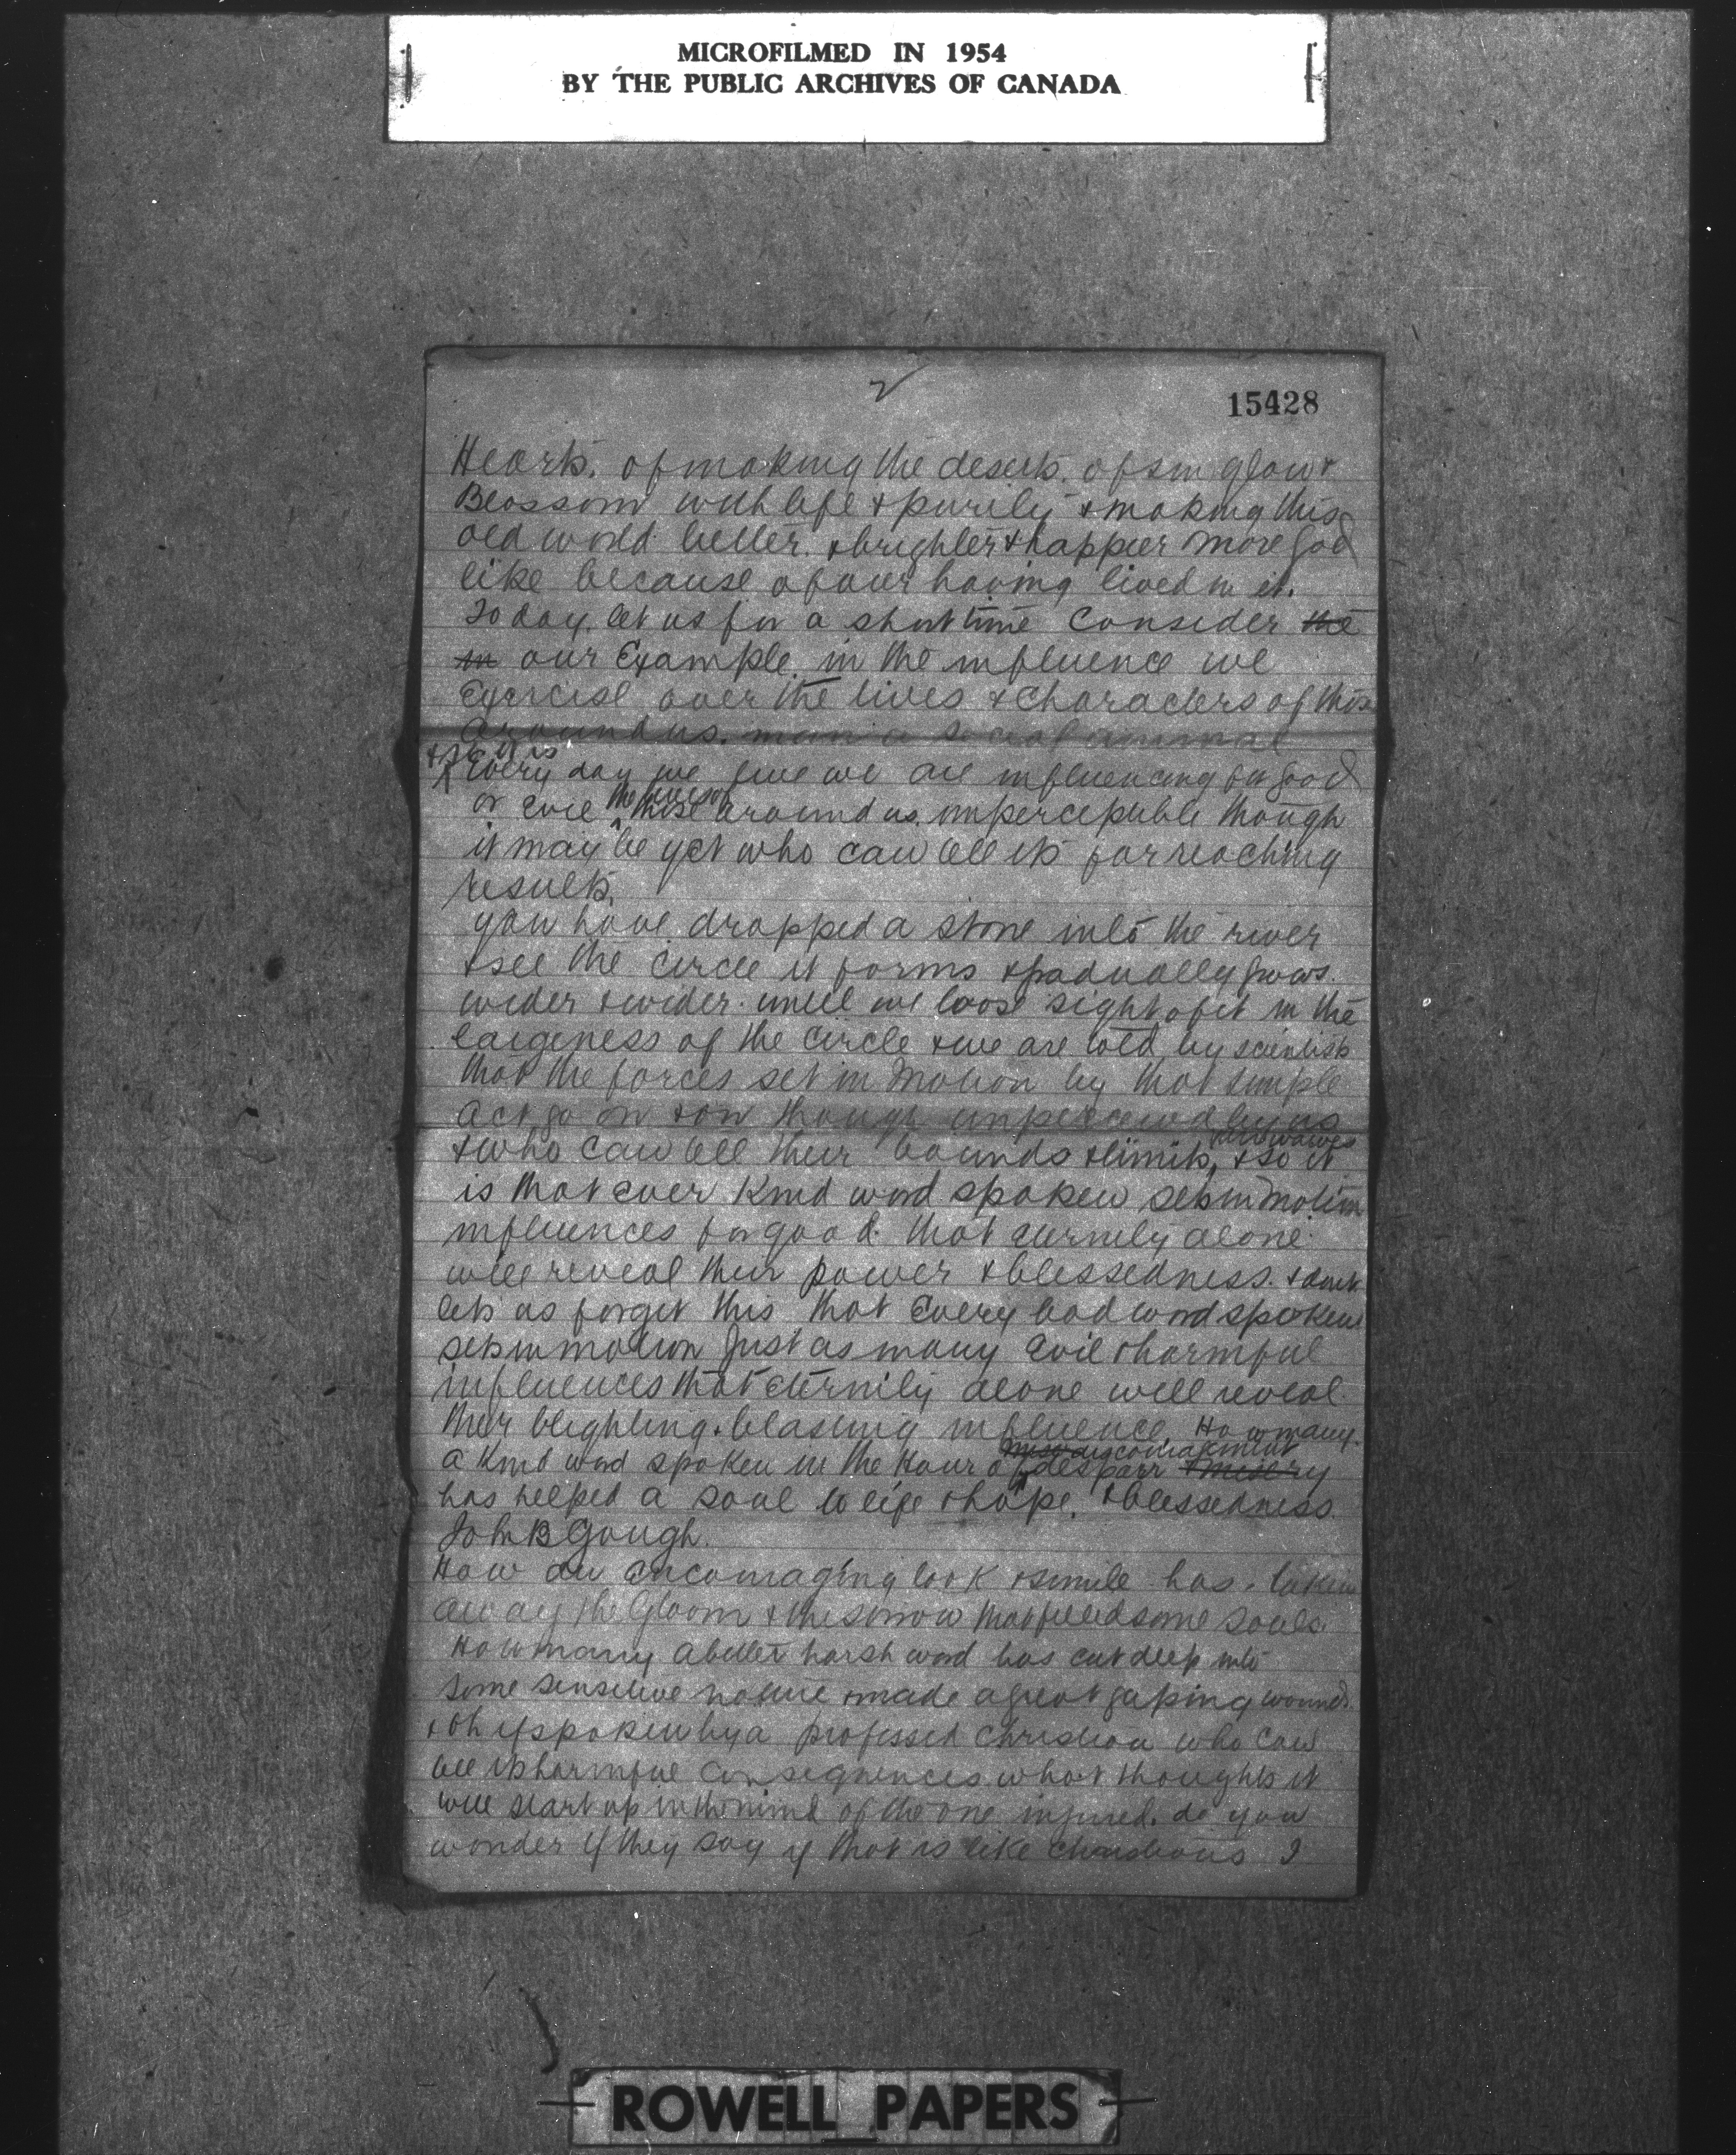 MICROFILMED IN 1954
BY THE PUBLIC ARCHIVES OF CANADA
2
15428
Hearts. of making the deserts. of sin glow &
Blossom with life & purity & making this
old world better. & brighter & happier more God
like because of our having lived in it.
Today. let us for a short time Consider the
in our Example in the influence we
Exercise over the lives & Characters of those
around us. man is a social animal
& so it is
Every day we live we are influencing for good
or evil the lives of those around us. imperceptible though
it may be yet who can tell its far reaching
results.
you have dropped a stone into the river
& see the circle it forms & gradually grows.
wider & wider. until we loose sight of it in the
largeness of the circle & we are told by scientists
that the forces set in motion by that simple
act go on & on though unperceived by us
& who can tell their bounds & limits, & so it
is that ever Kind word spoken sets in motion
influences for good. that eternity alone
will reveal their power & blessedness. & dont
lets us forget this that Every bad word spoken
sets in motion Just as many Evil & harmful
influences that eternity alone will reveal
their blighting. blasting influence. How many
discouragement
a Kind word spoken in the Hour of despair & misery
has helped a soul to life & hope. & blessedness.
John B Gough.
How an encouraging look & smile has. taken
away the Gloom & the sorrow that filled some souls.
How many a bitter harsh word has cut deep into
some sensitive nature & made a great gaping wound.
& oh if spoken by a professed Christian who can
tell its harmful Consequences. what thoughts it
will start up in the mind of the one injured. do you
wonder if they say if that is like Christians I
ROWELL PAPERS